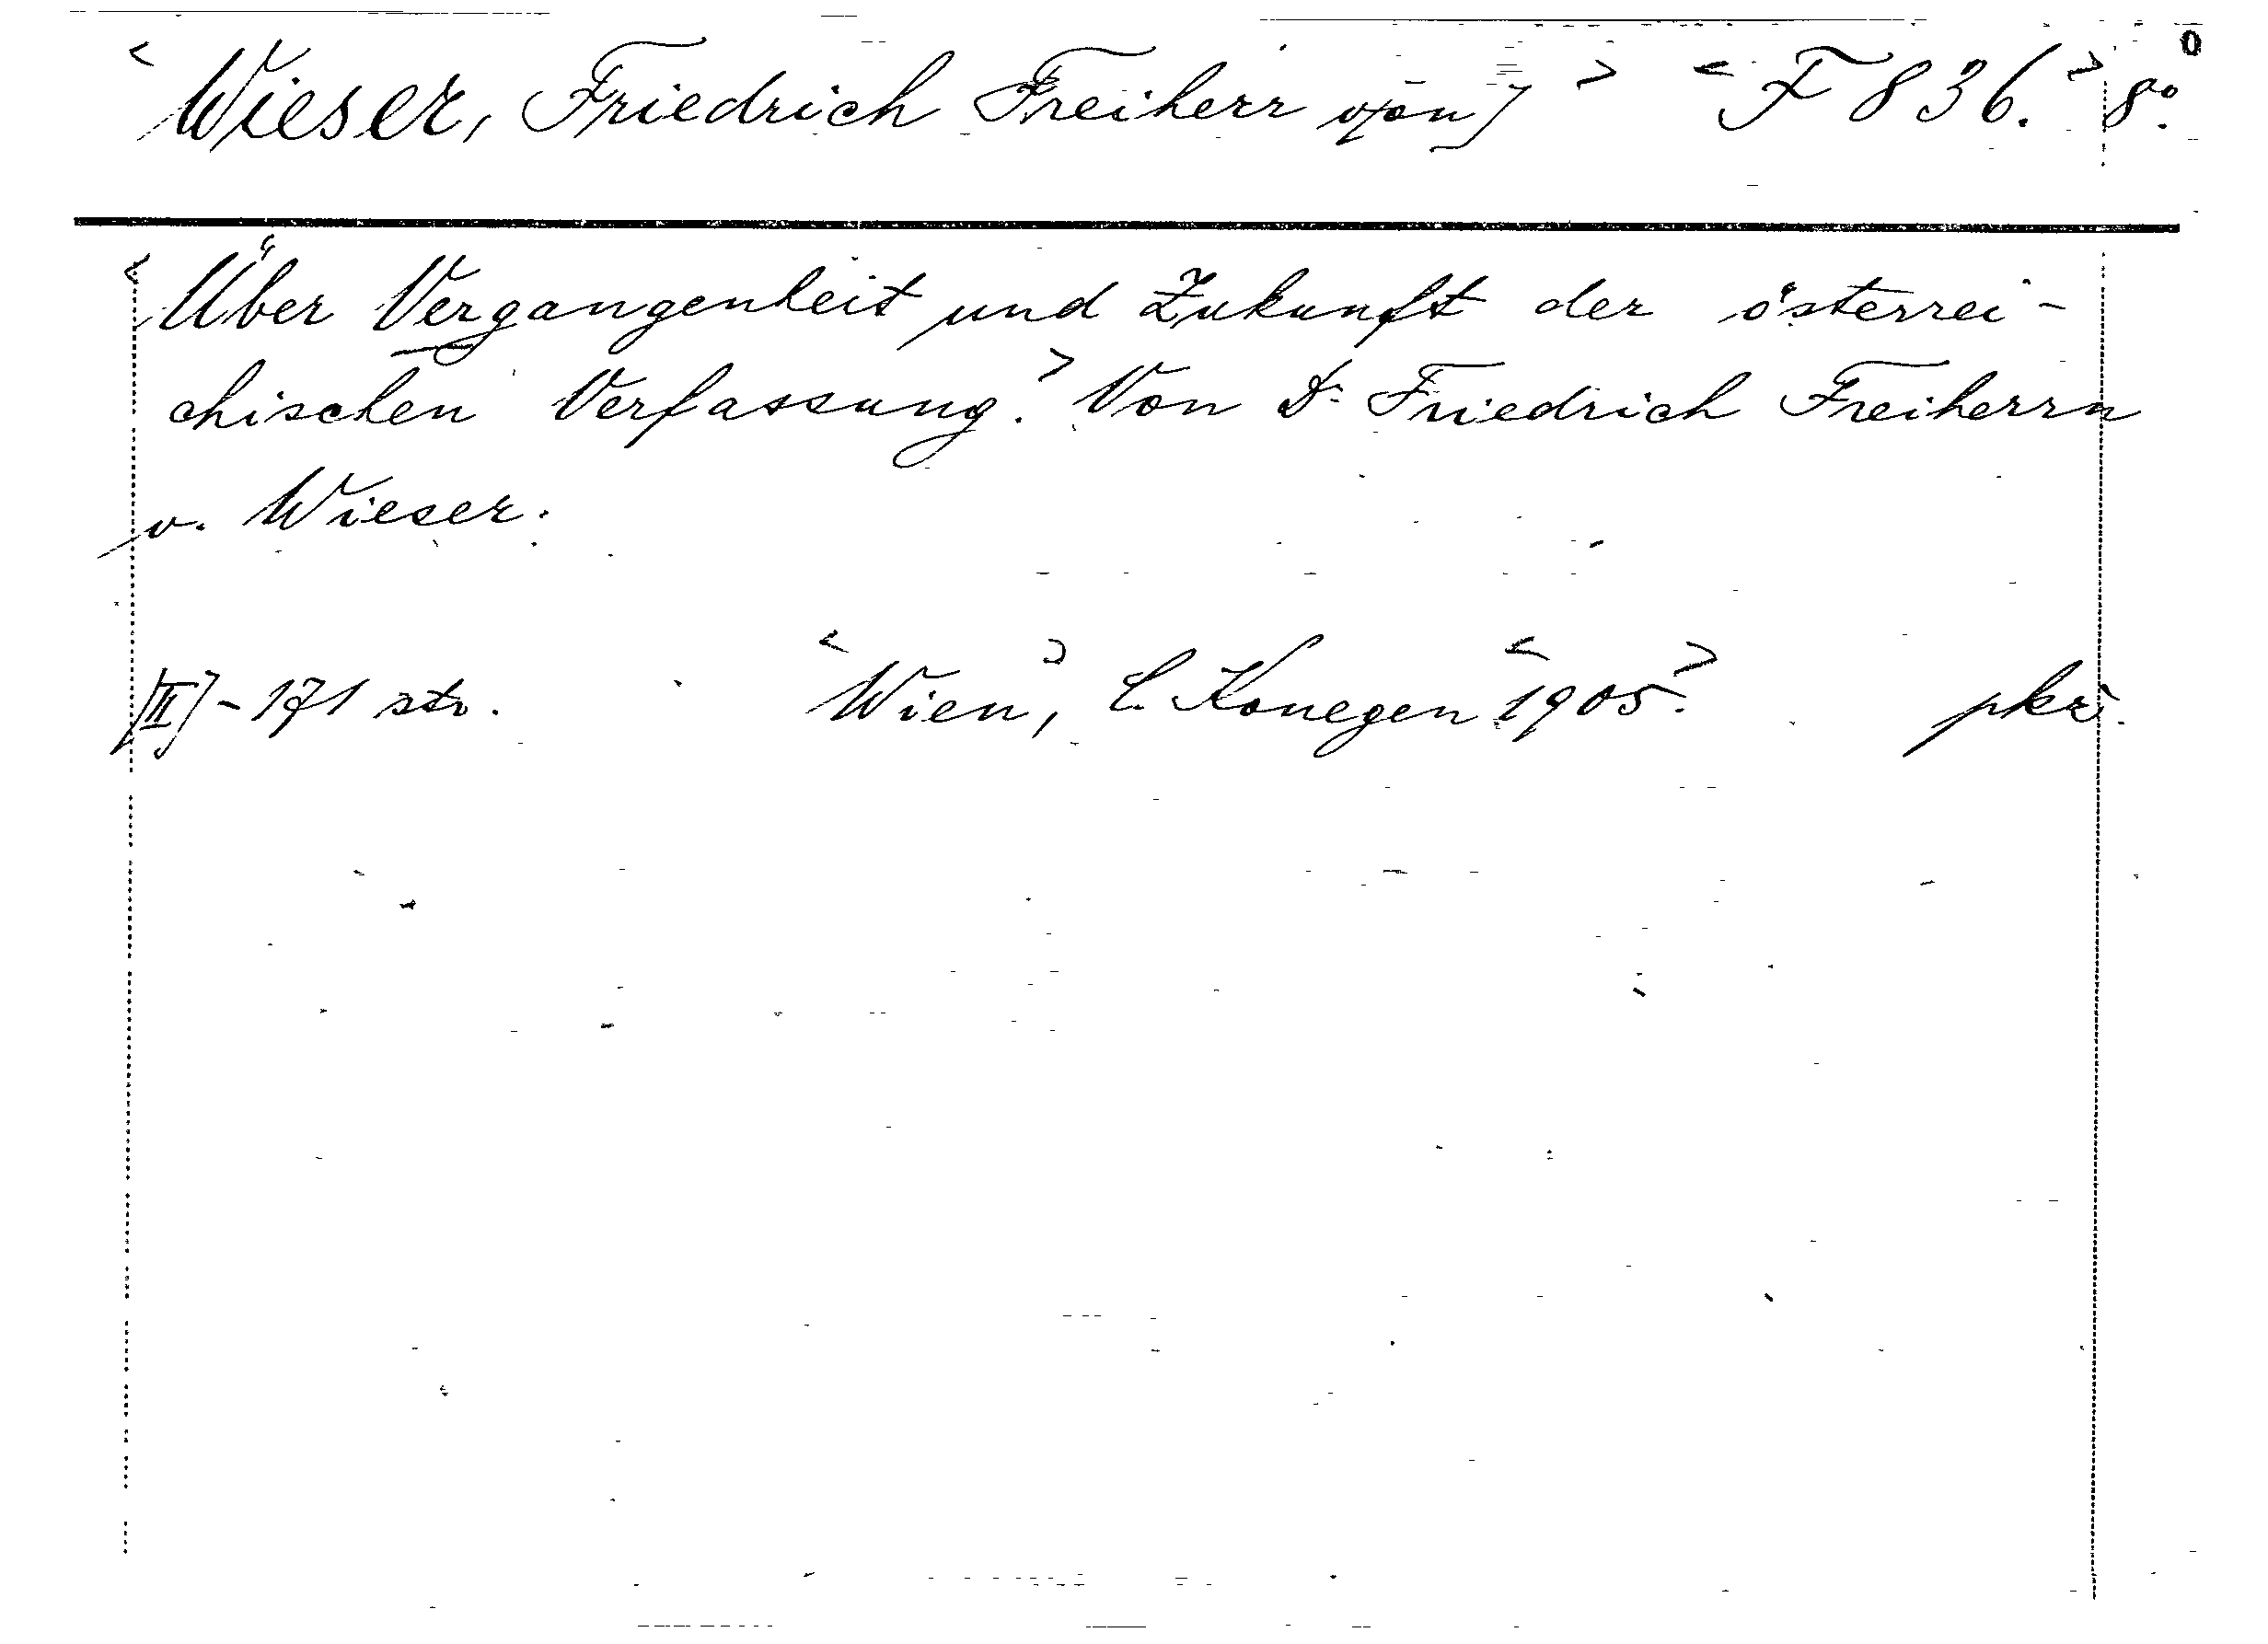 <Wieser, Friedrich Freiherr v[on]> <F 836.> 8°.
<Über Vergangenheit und Zukunft der österrei-
chischen Verfassung.> Von Dr. Friedrich Freiherrn
v. Wieser.
[II]-171 str. <Wien>, C. Konegen <1905.> pkr.